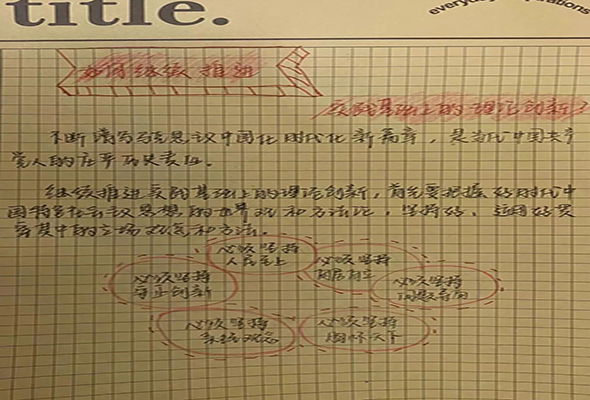 title.
如何继续推进
实践基础上的理论创新?
不断谱写马克思主义中国化时代化新篇章，是当代中国共产
党人的庄严历史责任。
继续推进实践基础上的理论创新，首先要把握好时代中
国特色社会主义思想的世界观和方法论，坚持好、运用好贯
穿其中的立场观点和方法。
必须坚持
人民至上
必须坚持
自信自立
必须坚持
守正创新
必须坚持
问题导向
必须坚持
系统观念
必须坚持
胸怀天下